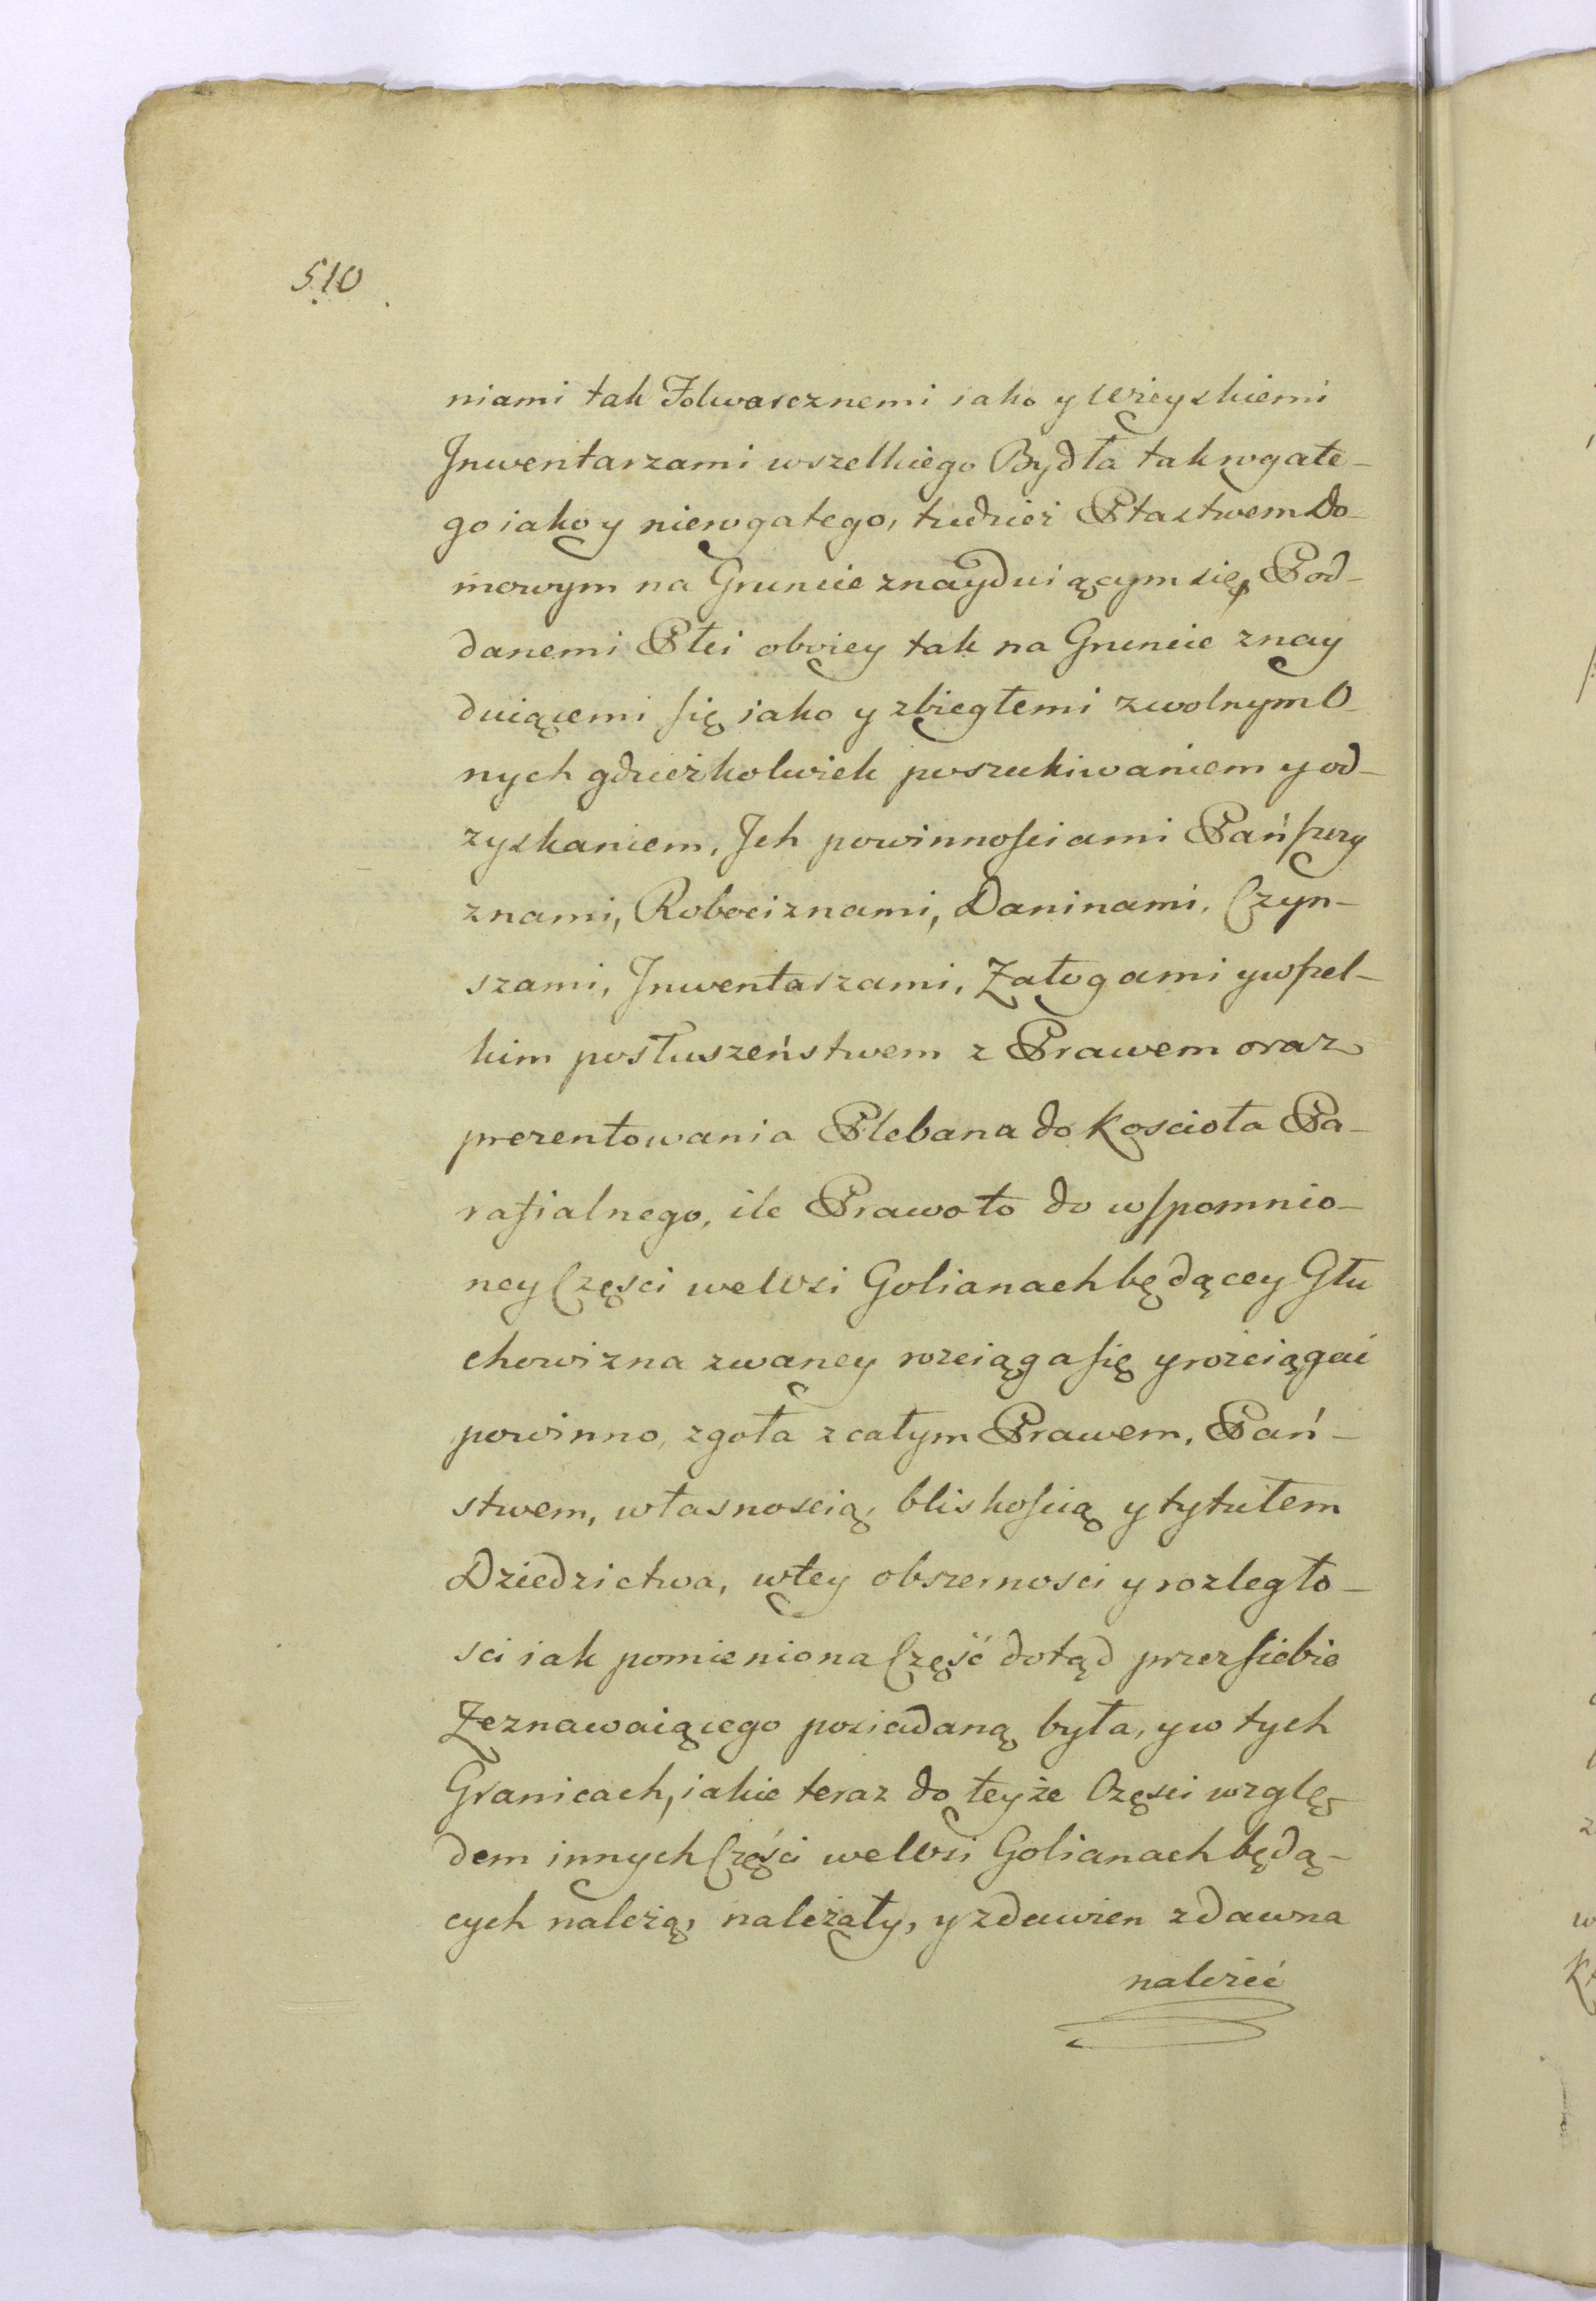 510
niami tak Folwarcznemi iako y Wieyskiemi
Jnwentarzami wszelkiego Bydła tak rogate-
go iako y nierogatego, tudzież Ptastwem Do-
mowym na Gruncie znayduiącym się, Pod-
danemi Płci oboiey tak na Gruncie znay
duiącemi się iako y zbiegłemi z wolnym O-
nych gdzieżkolwiek poszukiwaniem y od-
zyskaniem, Jch powinnościami Pańszczy
znami, Robociznami, Daninami, Czyn-
szami, Jnwentarzami, Załogami y wszel-
kim posłuszeństwem z Prawem oraz
prezentowania Plebana do Kościoła Pa-
rafialnego, ile Prawo to do wspomnio-
ney Części we Wsi Golianach będącey Głu
chowizna zwaney rozciąga się y rozciągać
powinno, zgoła z całym Prawem, Pań-
stwem, własnością, bliskością y tytułem
Dziedzictwa, w tey obszerności y rozległo-
sci iak pomieniona Część dotąd przez siebie
Zeznawaiącego posiadaną była, y w tych
Granicach, iakie teraz do teyże Części wzglę-
dem innych Części we Wsi Golianach będą-
cych należą, należały, y zdawien zdawna
należeć